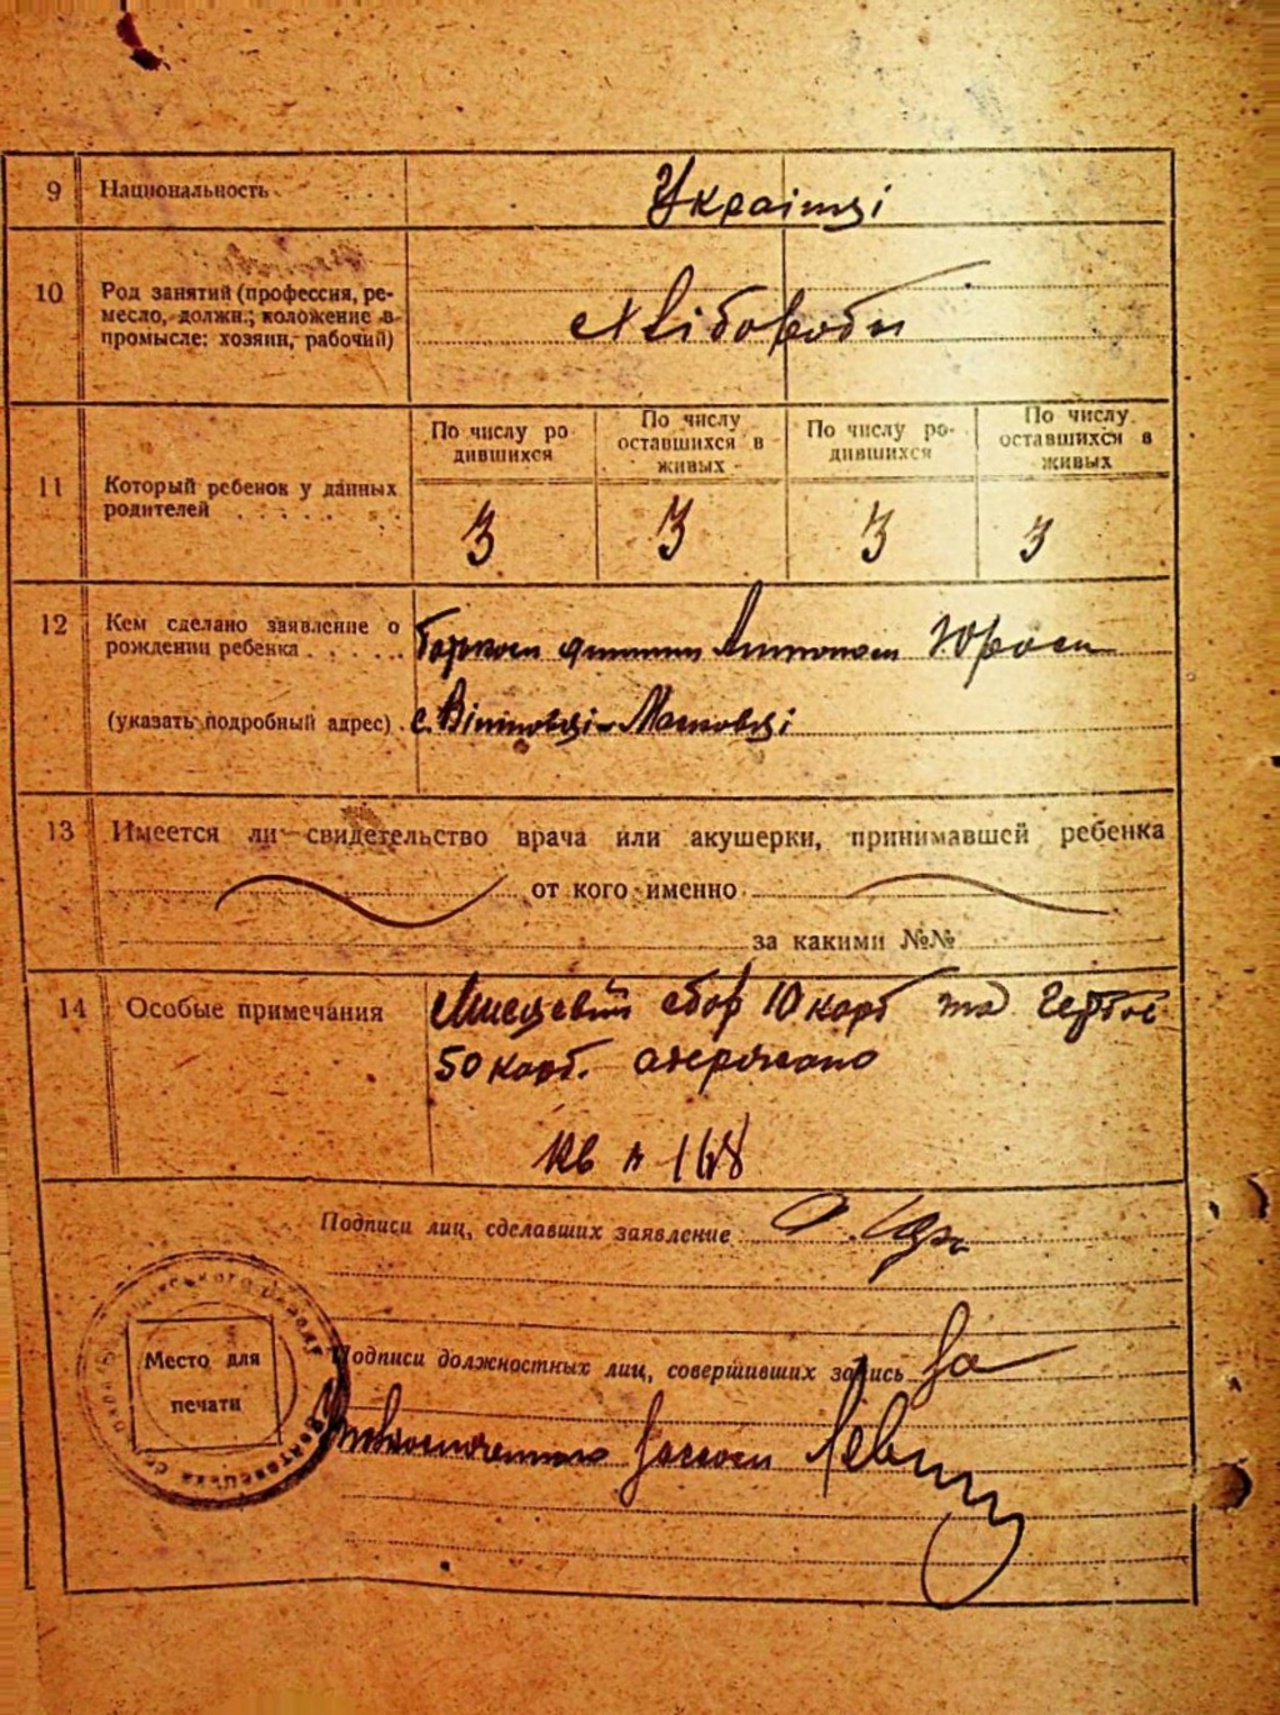 9 Национальность . . . . Українці
10 Род занятий (профессия, ре-
месло, должн.; положение в
промысле: хозяин, рабочий)
Хлібороби
По числу ро
дившихся
По числу
оставшихся в
живых
По числу ро-
дившихся
По числу
оставшихся в
живых
11 Который ребенок у данных
родителей . . . . . . . .
3 3 3 3
12 Кем сделано заявление о
рождении ребенка . . . . . .
Батьком дитини Антоном
(указать подробный адрес) . с.
13 Имеется ли свидетельство врача или акушерки, принимавшей ребенка
от кого именно
за какими №№
14 Особые примечания
збор 10 карб та
50 карб. одержано
Кв №
Подписи лиц, сделавших заявление
Место для
печати
Подписи должностных лиц, совершивших запись За